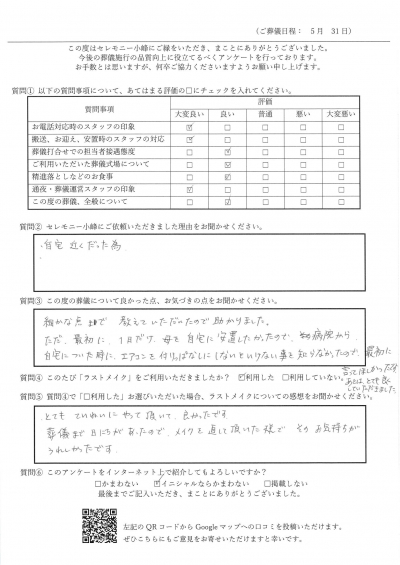 (ご葬儀日程： 5月 31日)
この度はセレモニー小峰にご縁をいただき、まことにありがとうございました。
今後の葬儀施行の品質向上に役立てるべくアンケートを行っております。
お手数とは思いますが、何卒ご協力くださいますようお願い申し上げます。
質問① 以下の質問事項について、あてはまる評価の□にチェックを入れてください。
質問事項 評価
大変良い 良い 普通 悪い 大変悪い
お電話対応時のスタッフの印象 ☑ □ □ □ □
搬送、お迎え、安置時のスタッフの対応 ☑ □ □ □ □
葬儀打合せでの担当者接遇態度 □ ☑ □ □ □
ご利用いただいた葬儀式場について □ ☑ □ □ □
精進落としなどのお食事 □ ☑ □ □ □
通夜・葬儀運営スタッフの印象 ☑ □ □ □ □
この度の葬儀、全般について □ ☑ □ □ □
質問② セレモニー小峰にご依頼いただきました理由をお聞かせください。
・自宅近くだった為
質問③ この度の葬儀について良かった点、お気づきの点をお聞かせください。
細かな点まで 教えていただいたので助かりました。
ただ、最初に、1日だけ、母を自宅に安置したかったので、病院から
自宅についた時に、エアコンを付けっぱなしにしないといけない事を知らなかったので、最初に
言ってほしかったです
あとは、とても良く
していただきました
質問④ このたび「ラストメイク」をご利用いただきましたか？ ☑利用した □利用していない
質問⑤ 質問④で「□利用した」お選びいただいた場合、ラストメイクについての感想をお聞かせください。
とても ていねいに やって頂いて、良かったです
葬儀まで日にちがあったので、メイクを直して頂いた様で そのお気持ちが
うれしかったです。
質問⑥ このアンケートをインターネット上で紹介してもよろしいですか？
□かまわない ☑イニシャルならかまわない □掲載しない
最後までご記入いただき、まことにありがとうございました。
左記のQRコードからGoogleマップへの口コミを投稿いただけます。
ぜひこちらにもご意見をお寄せいただけますと幸いです。